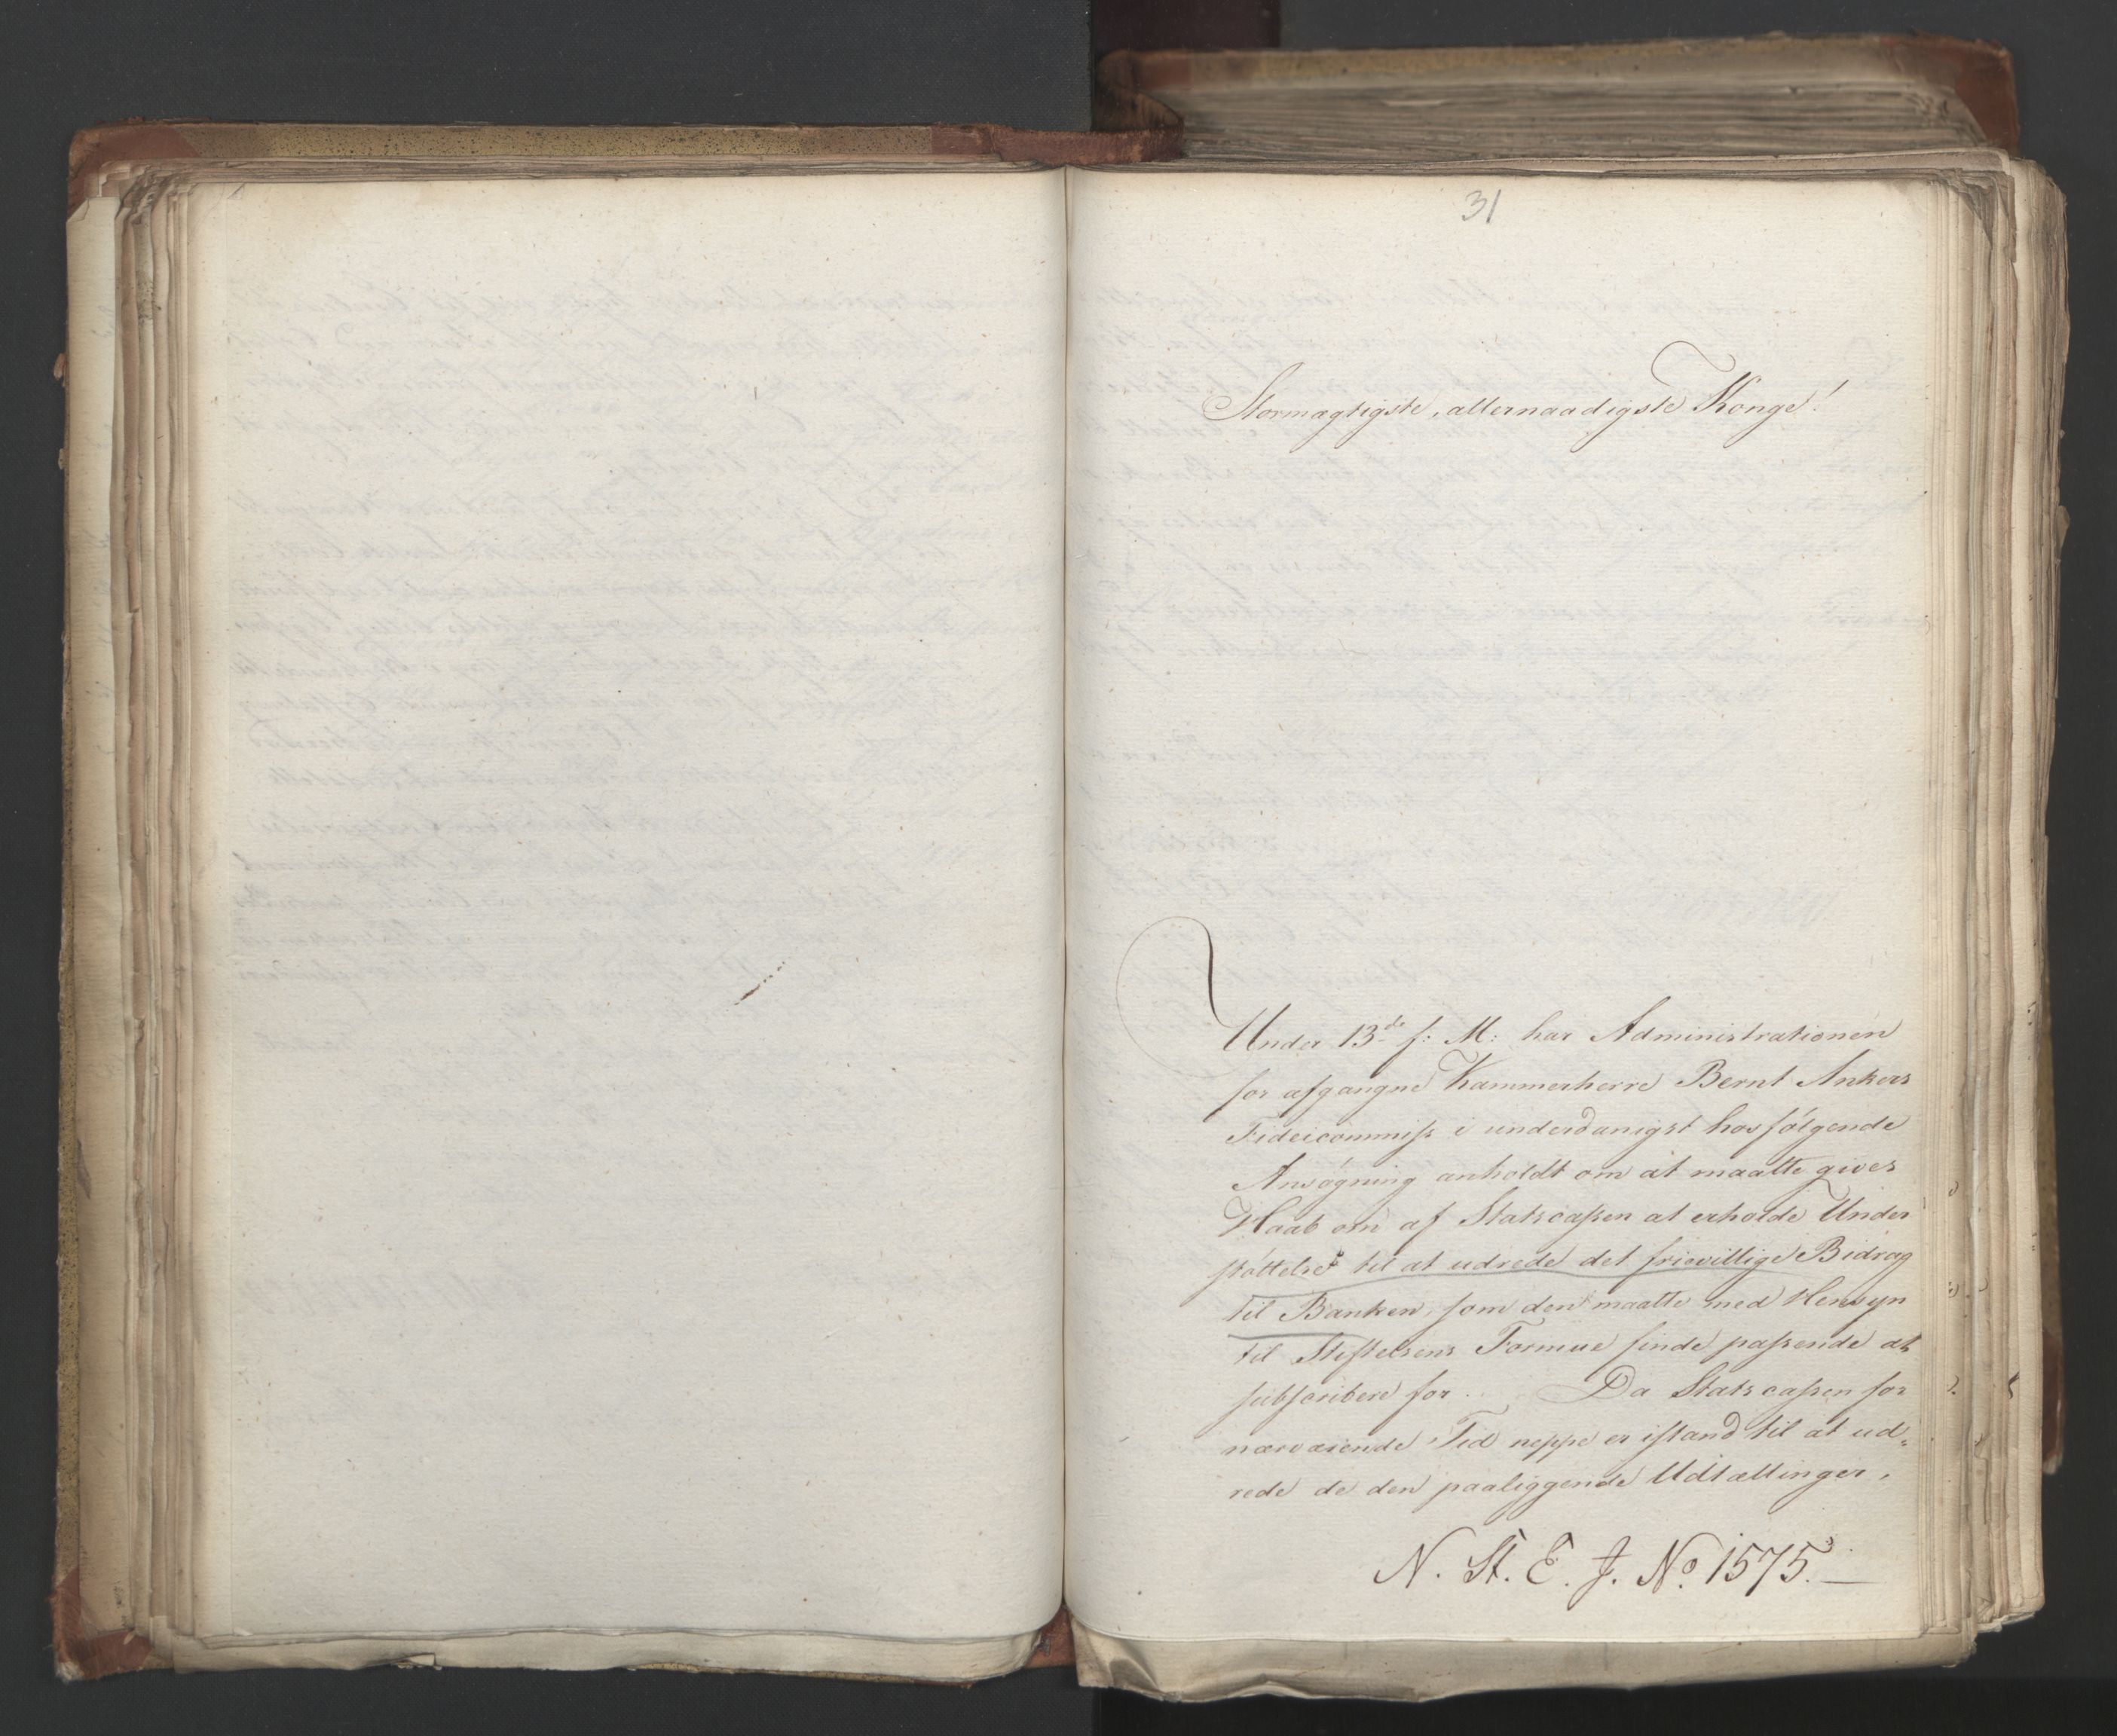 31
Stormægtigste, allernaadigste Konge!
Under 13de f: M: har Administrationen
for afgangne Kammerherre Bernt Ankers
Fideicommiss i underdanigst hosfølgende
Ansøgning anholdt om at maatte gives
Haab om af Statscassen at erholde Under
støttelse til at udrede det frievillige Bidrag
til Banken, som den maatte med Hensyn
til Stiftelsens Formue finde passende at
subscribere for. Da Statscassen for
nærværende Tid neppe er istand til at ud„
rede de den paaliggende Udtællinger,
N. St. E. J. No. 1575.